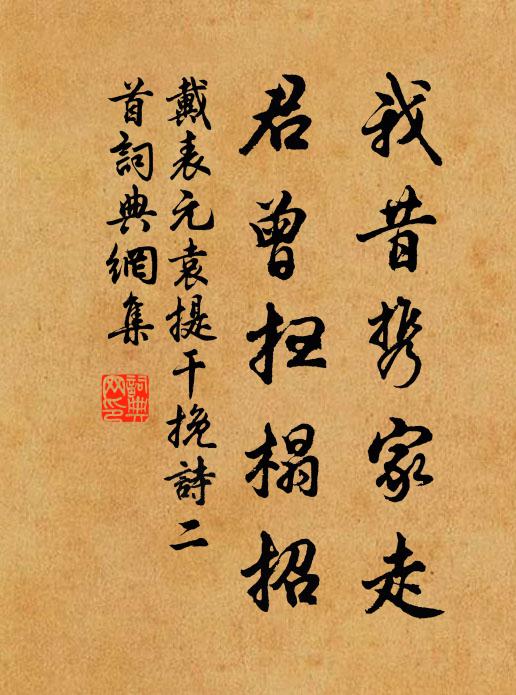 我昔携家走
君曾扫榻招
戴表元袁提干挽詩二
首詞典網集
詞典
网印